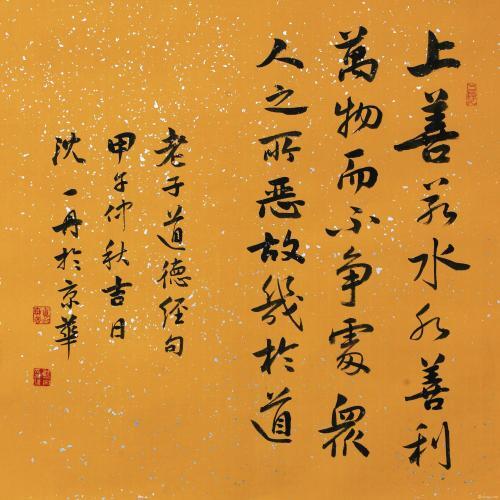 上善若水水善利
萬物而不争處眾
人之所恶故幾於道
老子道德经句
甲午仲秋吉日
沈一丹於京華